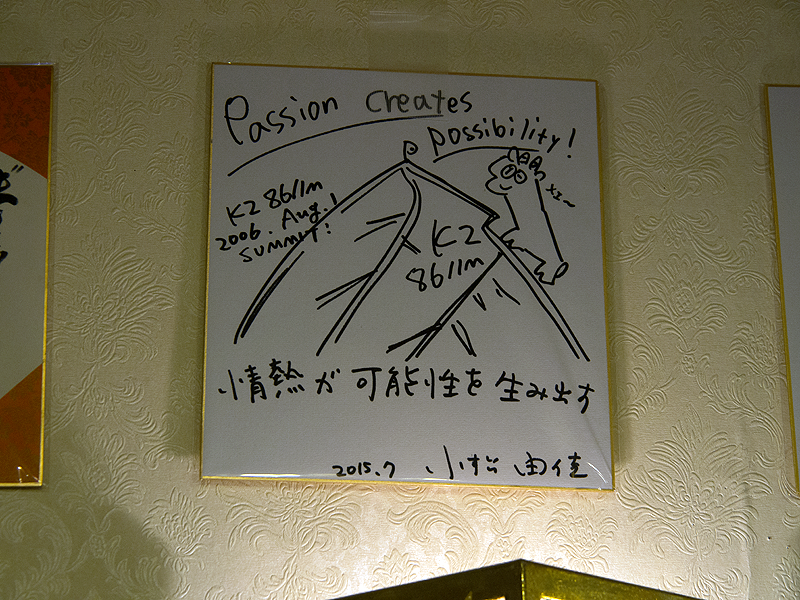 Passion Creates
possibility!
K2 8611m
2006. Aug. 1
SUMMIT!
メェ〜
K2
8611m
情熱が可能性を生み出す
2015.7 小松由佳